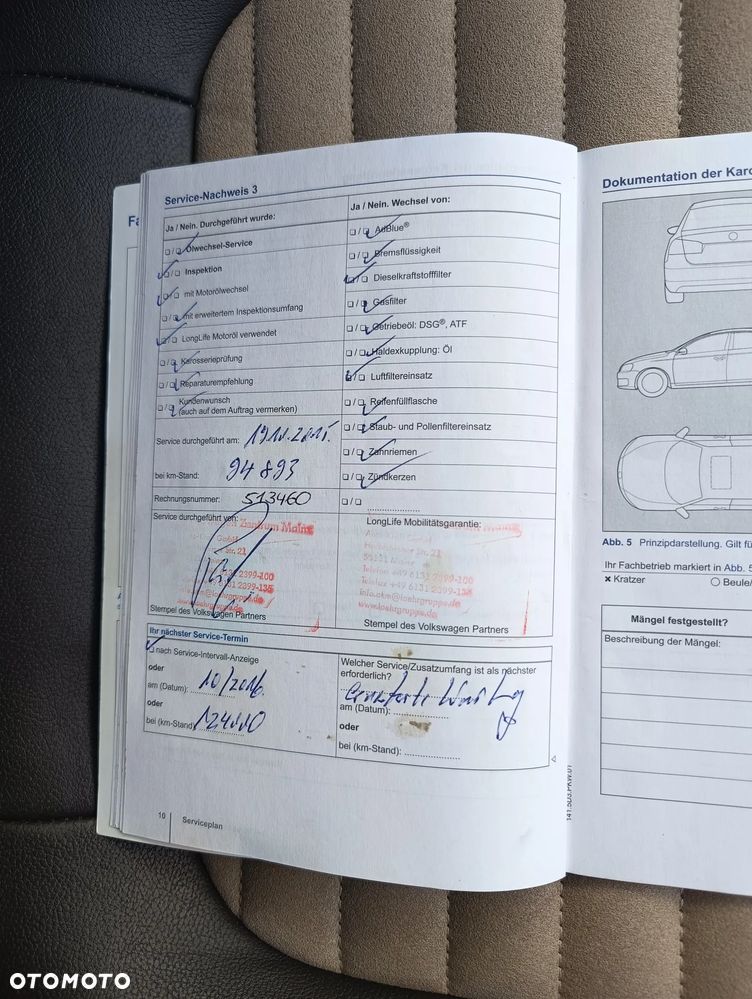 Service-Nachweis 3
Ja / Nein. Durchgeführt wurde:
❏/❏ Ölwechsel-Service
❏/❏ Inspektion
❏/❏ mit Motorölwechsel
❏/❏ mit erweitertem Inspektionsumfang
❏/❏ LongLife Motoröl verwendet
❏/❏ Karosserieprüfung
❏/❏ Reparaturempfehlung
❏/❏ Kundenwunsch
(auch auf dem Auftrag vermerken)
Service durchgeführt am:
bei km-Stand: 94 893
Rechnungsnummer: 513460
Service durchgeführt von:
Zentrum Mainz
Str. 21
2399-100
2399-135
Stempel des Volkswagen Partners
Ja / Nein. Wechsel von:
❏/❏ AdBlue®
❏/❏ Bremsflüssigkeit
❏/❏ Dieselkraftstofffilter
❏/❏ Gasfilter
❏/❏ Getriebeöl: DSG®, ATF
❏/❏ Haldexkupplung: Öl
❏/❏ Luftfiltereinsatz
❏/❏ Reifenfüllflasche
❏/❏ Staub- und Pollenfiltereinsatz
❏/❏ Zahnriemen
❏/❏ Zündkerzen
❏/❏
LongLife Mobilitätsgarantie:
Telefon +49 6131 2399-100
Telefax +49 6131 2399-135
www.loehrgruppe.de
Stempel des Volkswagen Partners
Ihr nächster Service-Termin
❏ nach Service-Intervall-Anzeige
oder
am (Datum): 10/2016
oder
bei (km-Stand)
Welcher Service/Zusatzumfang ist als nächster
erforderlich?
am (Datum):
oder
bei (km-Stand):
10
Serviceplan
141.5D3.PKW.01
Dokumentation der Karo
Abb. 5 Prinzipdarstellung. Gilt fü
Ihr Fachbetrieb markiert in Abb. 5
× Kratzer ○ Beule/
Mängel festgestellt?
Beschreibung der Mängel:
OTOMOTO